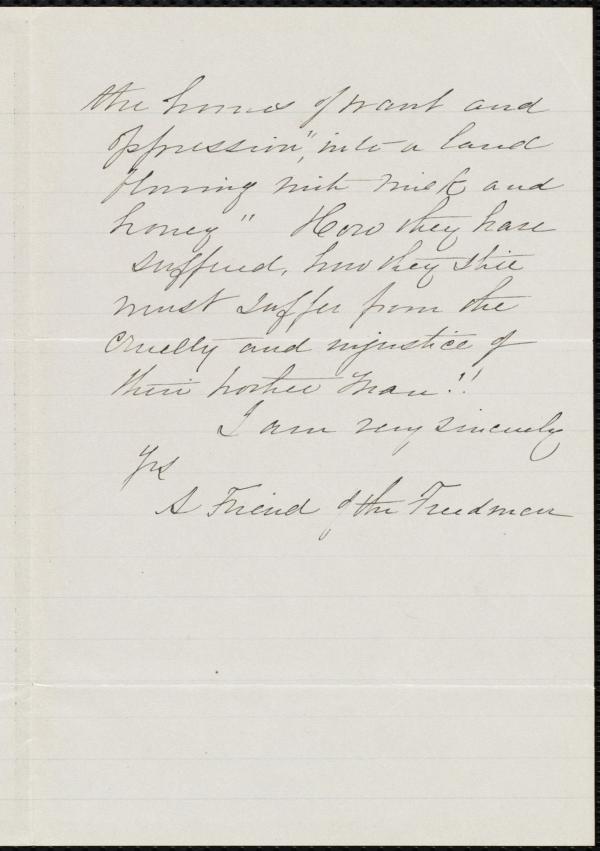 the homes of want and
oppression", into a land
flowing with milk and
honey" How they have
suffered, how they still
must suffer from the
cruelty and injustice of
their brother man!!
I am very sincerely
Yrs
A Friend of the Freedman